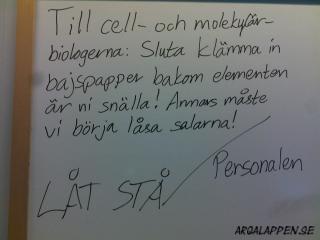 Till cell- och molekylär-
biologerna: Sluta klämma in
bajspapper bakom elementen
är ni snälla! Annars måste
vi börja låsa salarna!
Personalen
LÅT STÅ
ARGALAPPEN.SE